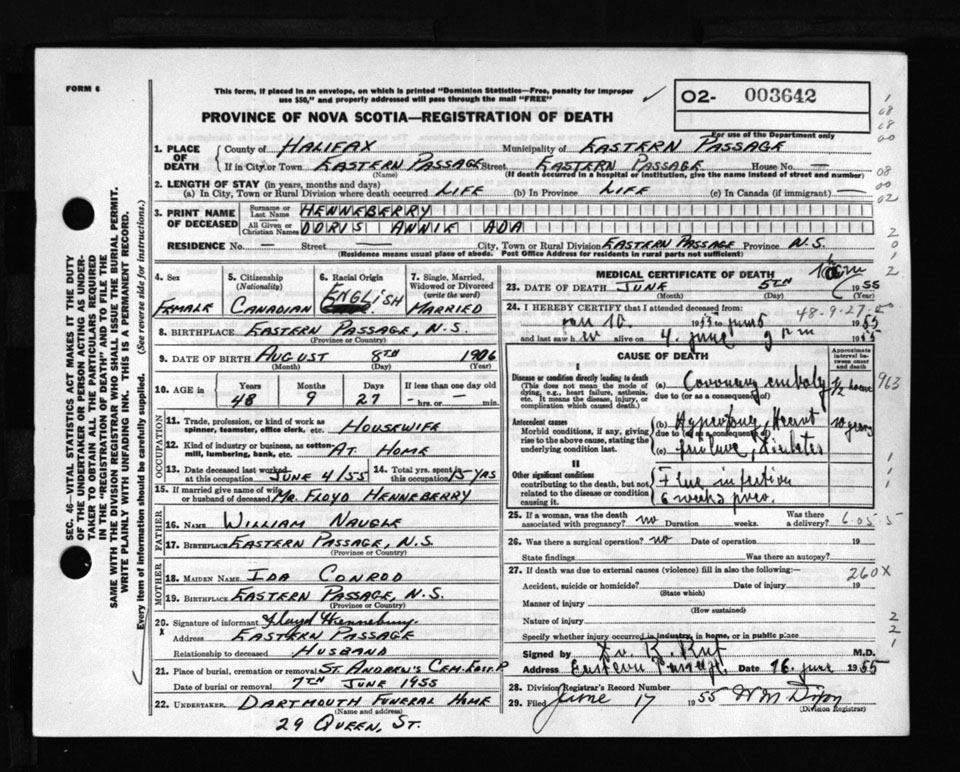 FORM 6
This form, if placed in an envelope, on which is printed "Dominion Statistics—Free, penalty for improper
use $50," and properly addressed will pass through the mail "FREE"
PROVINCE OF NOVA SCOTIA—REGISTRATION OF DEATH
O2- 003642
For use of the Department only
1. PLACE OF DEATH
County of HALIFAX Municipality of EASTERN PASSAGE
If in City or Town EASTERN PASSAGE Street EASTERN PASSAGE House No. —
(Name) (If death occurred in a hospital or institution, give the name instead of street and number)
2. LENGTH OF STAY (in years, months and days)
(a) In City, Town or Rural Division where death occurred LIFE (b) In Province LIFE (c) In Canada (if immigrant) —
3. PRINT NAME OF DECEASED
Surname or Last Name HENNEBERRY
All Given or Christian Names DORIS ANNIE ADA
RESIDENCE No. — Street — City, Town or Rural Division EASTERN PASSAGE Province N.S.
(Residence means usual place of abode. Post Office Address for residents in rural parts not sufficient)
4. Sex
FEMALE
5. Citizenship (Nationality)
CANADIAN
6. Racial Origin
ENGLISH
7. Single, Married, Widowed or Divorced (write the word)
MARRIED
8. BIRTHPLACE EASTERN PASSAGE, N.S.
(Province or Country)
9. DATE OF BIRTH AUGUST 8TH 1906
(Month) (Day) (Year)
10. AGE in Years Months Days If less than one day old
48 9 27 —hrs. or — min.
OCCUPATION
11. Trade, profession, or kind of work as spinner, teamster, office clerk, etc. HOUSEWIFE
12. Kind of industry or business, as cotton-mill, lumbering, bank, etc. AT HOME
13. Date deceased last worked at this occupation JUNE 4/55 14. Total yrs. spent in this occupation 15 YRS
15. If married give name of wife or husband of deceased MR. FLOYD HENNEBERRY
FATHER
16. NAME WILLIAM NAUGLE
17. BIRTHPLACE EASTERN PASSAGE, N.S.
(Province or Country)
MOTHER
18. MAIDEN NAME IDA CONROD
19. BIRTHPLACE EASTERN PASSAGE, N.S.
(Province or Country)
20. Signature of informant Floyd Henneberry
x Address EASTERN PASSAGE
Relationship to deceased HUSBAND
21. Place of burial, cremation or removal ST. ANDREW'S CEM. EAST. P
Date of burial or removal 7TH JUNE 1955
22. UNDERTAKER DARTMOUTH FUNERAL HOME
(Name and address)
29 QUEEN, ST.
MEDICAL CERTIFICATE OF DEATH
23. DATE OF DEATH JUNE 5TH 1955
(Month) (Day) (Year)
24. I HEREBY CERTIFY that I attended deceased from:
48-9-27
1955 to June 5 1955
and last saw h er alive on 4 June 9 pm 1955
CAUSE OF DEATH
Approximate interval between onset and death
I
Disease or condition directly leading to death
(This does not mean the mode of dying, e.g., heart failure, asthenia, etc. It means the disease, injury, or complication which caused death.)
(a) Coronary emboly 1/2 hour
due to (or as a consequence of)
963
Antecedent causes
Morbid conditions, if any, giving rise to the above cause, stating the underlying condition last.
(b) Heart 10 years
due to (or as a consequence of)
(c) failure, Diabetes
II
Other significant conditions
contributing to the death, but not related to the disease or condition causing it.
Flue infection
6 weeks prev.
25. If a woman, was the death associated with pregnancy? no Duration weeks. Was there a delivery?
6.05.5
26. Was there a surgical operation? no Date of operation 19
State findings Was there an autopsy?
27. If death was due to external causes (violence) fill in also the following:—
260X
Accident, suicide or homicide? Date of injury 19
(State which)
Manner of injury
(How sustained)
Nature of injury
Specify whether injury occurred in industry, in home, or in public place
Signed by Dr. R. M.D.
Address Eastern Passage Date 16 June 1955
28. Division Registrar's Record Number
29. Filed June 17 1955 W M Dixon
(Division Registrar)
SEC. 46—VITAL STATISTICS ACT MAKES IT THE DUTY
OF THE UNDERTAKER OR PERSON ACTING AS UNDER-
TAKER TO OBTAIN ALL THE PARTICULARS REQUIRED
IN THE "REGISTRATION OF DEATH" AND TO FILE THE
SAME WITH THE DIVISION REGISTRAR WHO SHALL ISSUE THE BURIAL PERMIT.
WRITE PLAINLY WITH UNFADING INK. THIS IS A PERMANENT RECORD.
Every item of information should be carefully supplied. (See reverse side for instructions.)